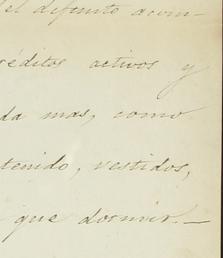 el difunto acom-
réditos activos y
da mas, como
tenido, vestidos,
que dormir.—